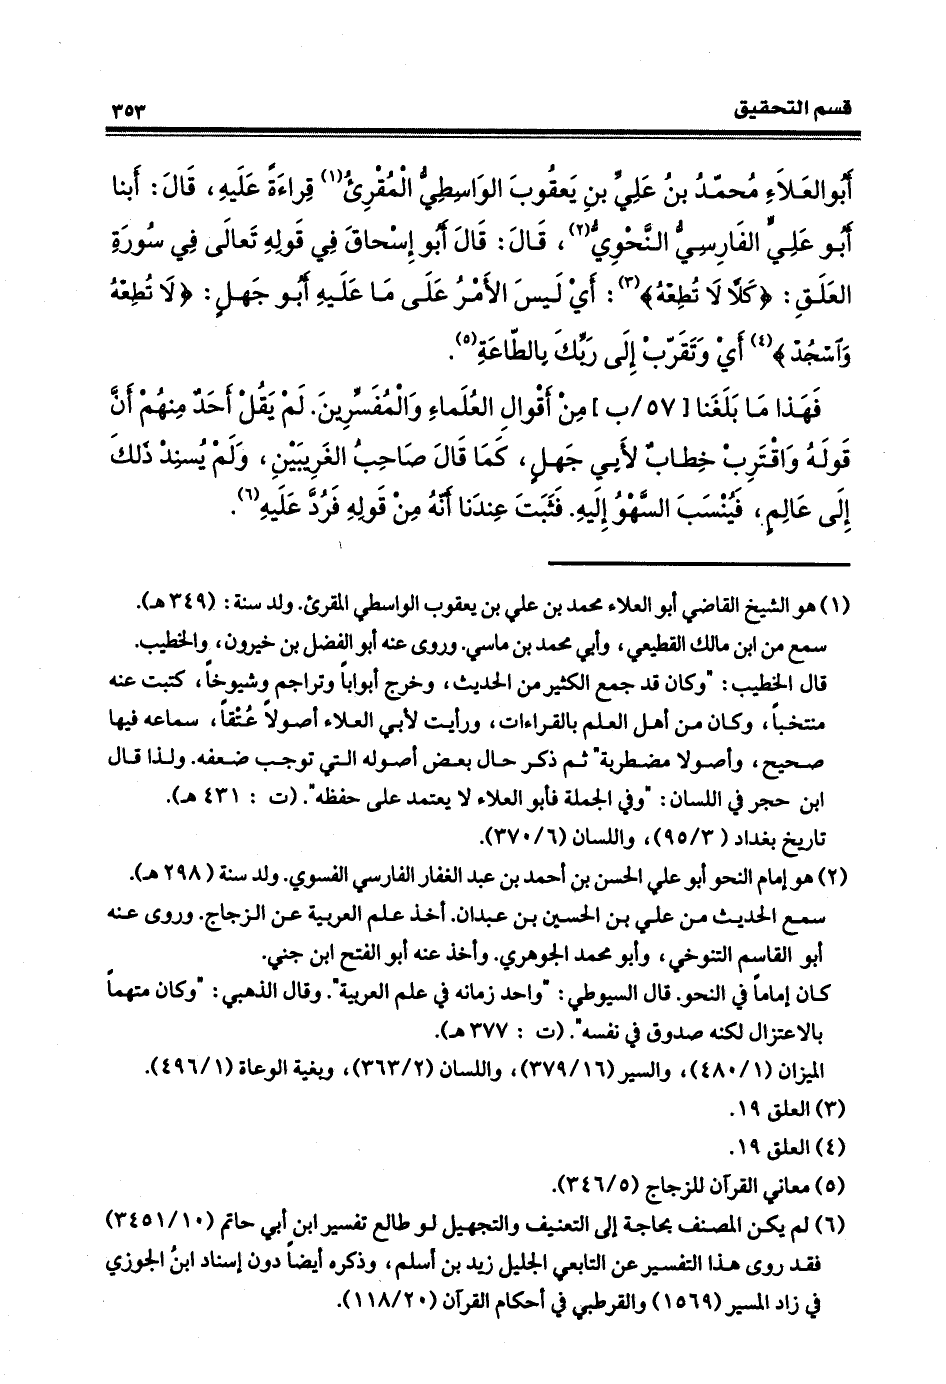 قسم التحقيق ٣٥٣
أَبُوالعَلاَءِ مُحمّدُ بنُ عَلِيِّ بنِ يَعقُوبَ الوَاسِطِيُّ الْمُقْرِئُ(١) قِراءَةً عَلَيهِ، قَالَ: أَبنا
أَبُو عَلِيٍّ الفَارِسِيُّ النَّحْوِيُّ(٢)، قَالَ: قَالَ أَبُو إِسْحاقَ فِي قَولِهِ تَعالَى فِي سُورَةِ
العَلَقِ: ﴿كَلَّا لَا تُطِعْهُ﴾(٣): أَيْ لَيسَ الأَمْرُ عَلَى مَا عَلَيهِ أَبُو جَهلٍ: ﴿لَا تُطِعْهُ
وَٱسْجُدْ﴾(٤) أَيْ وَتَقَرّبْ إِلَى رَبِّكَ بِالطّاعَةِ(٥).
فَهَذا مَا بَلَغَنا [٥٧/ب] مِنْ أَقْوالِ العُلَماءِ وَالْمُفَسِّرِينَ. لَمْ يَقُلْ أَحَدٌ مِنهُمْ أَنَّ
قَولَهُ وَاقْتَرِبْ خِطابٌ لأَبِي جَهلٍ، كَمَا قَالَ صَاحِبُ الغَرِيبَيْنِ، وَلَمْ يُسنِدْ ذَلكَ
إِلَى عَالِمٍ، فَيُنْسَبَ السَّهْوُ إِلَيهِ. فَثَبَتَ عِندَنا أَنَّهُ مِنْ قَولِهِ فَرُدَّ عَلَيهِ(٦).
(١) هو الشيخ القاضي أبو العلاء محمد بن علي بن يعقوب الواسطي المقرئ. ولد سنة: (٣٤٩هـ).
سمع من ابن مالك القطيعي، وأبي محمد بن ماسي. وروى عنه أبو الفضل بن خيرون، والخطيب.
قال الخطيب: "وكان قد جمع الكثير من الحديث، وخرج أبواباً وتراجم وشيوخاً، كتبت عنه
منتخباً، وكان من أهل العلم بالقراءات، ورأيت لأبي العلاء أصولاً عُتْقاً، سماعه فيها
صحيح، وأصولا مضطربة" ثم ذكر حال بعض أصوله التي توجب ضعفه. ولذا قال
ابن حجر في اللسان: "وفي الجملة فأبو العلاء لا يعتمد على حفظه". (ت : ٤٣١ هـ).
تاريخ بغداد (٩٥/٣)، واللسان (٣٧٠/٦).
(٢) هو إمام النحو أبو علي الحسن بن أحمد بن عبد الغفار الفارسي الفسوي. ولد سنة (٢٩٨هـ).
سمع الحديث من علي بن الحسين بن عبدان. أخذ علم العربية عن الزجاج. وروى عنه
أبو القاسم التنوخي، وأبو محمد الجوهري. وأخذ عنه أبو الفتح ابن جني.
كان إماماً في النحو. قال السيوطي: "واحد زمانه في علم العربية". وقال الذهبي: "وكان متهماً
بالاعتزال لكنه صدوق في نفسه". (ت : ٣٧٧هـ).
الميزان (٤٨٠/١)، والسير (٣٧٩/١٦)، واللسان (٣٦٣/٢)، وبغية الوعاة (٤٩٦/١).
(٣) العلق ١٩.
(٤) العلق ١٩.
(٥) معاني القرآن للزجاج (٣٤٦/٥).
(٦) لم يكن المصنف بحاجة إلى التعنيف والتجهيل لو طالع تفسير ابن أبي حاتم (٣٤٥١/١٠)
فقد روى هذا التفسير عن التابعي الجليل زيد بن أسلم، وذكره أيضاً دون إسناد ابنُ الجوزي
في زاد المسير (١٥٦٩) والقرطبي في أحكام القرآن (١١٨/٢٠).